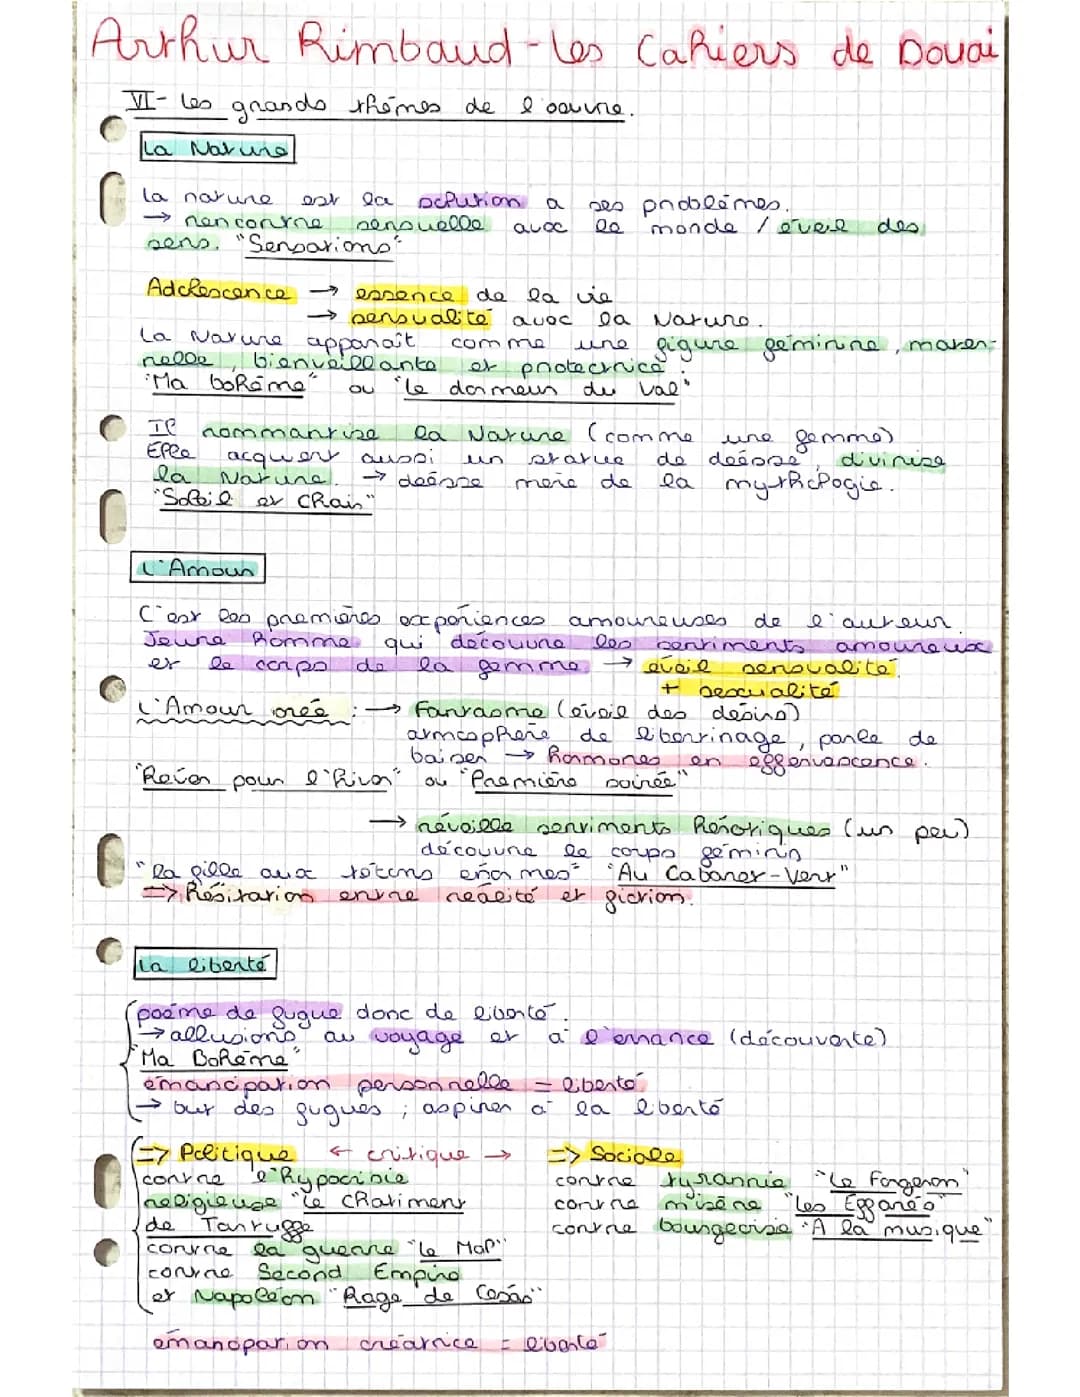 Arthur Rimbaud - Les Cahiers de Douai
VI- Les grands thèmes de l'oeuvre.
La Nature
La nature est la solution a ses problèmes.
→ rencontre sensuelle avec le monde / éveil des
sens. "Sensations"
Adolescence → essence de la vie
→ sensualité avec la Nature.
La Nature apparaît comme une figure féminine, mater-
nelle, bienveillante et protectrice.
"Ma bohème" ou "Le dormeur du Val"
Il rommantise la Nature (comme une femme)
Elle acquert aussi un statue de déesse, divinise
la Nature. → déesse mère de la mythologie.
"Soleil et Chair"
L'Amour
C'est les premières expériences amoureuses de l'auteur.
Jeune homme qui découvre les sentiments amoureux
et le corps de la femme → éveil sensualité
+ sexualité
L'Amour créé : → Fantasme (éveil des désirs)
atmosphère de libertinage, parle de
baiser → hormones en effervescence.
"Rêver pour l'hiver" ou "Première soirée"
→ réveille sentiments héroïques (un peu)
découvre le corps féminin
"la fille aux tétons énormes" "Au Cabaret-Vert"
=> hésitation entre réalité et fiction.
La liberté
poème de fugue donc de liberté.
→ allusions au voyage et à l'errance (découverte)
"Ma Bohême"
émancipation personnelle = liberté
→ but des fugues ; aspirer à la liberté
=> Politique ← critique → => Sociale
contre l'hypocrisie contre tyrannie "Le Forgeron"
religieuse "Le Chatiment contre misère "Les Effarés"
de Tartuffe contre bourgeoisie "A la musique"
contre la guerre "Le Mal"
contre Second Empire
et Napoléon "Rage de Cesars"
émancipation créatrice = liberté